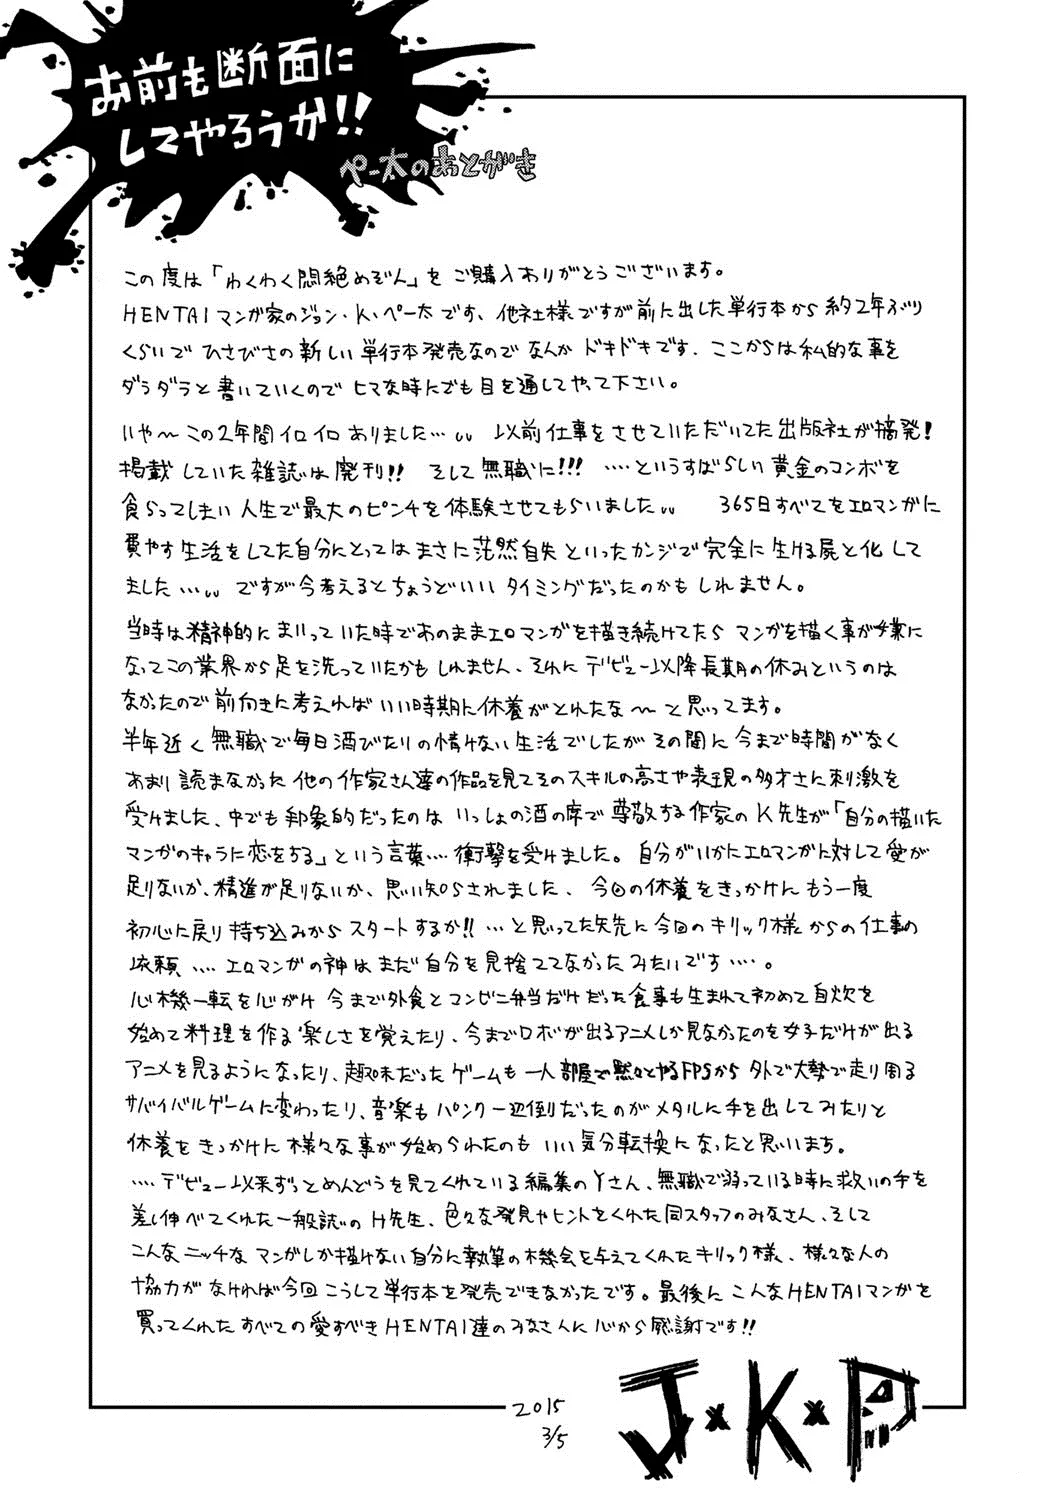 お前も断面に
してやろうか!!
ペー太のあとがき
この度は「わくわく悶絶めぞん」をご購入ありがとうございます。
HENTAIマンガ家のジョン・K・ペー太です、他社様ですが前に出した単行本から約2年ぶり
くらいでひさびさの新しい単行本発売なのでなんかドキドキです.ここからは私的な事を
ダラダラと書いていくのでヒマな時にでも目を通してやって下さい。
いや〜この2年間イロイロありました…。。以前仕事をさせていただいてた出版社が摘発!
掲載していた雑誌は廃刊!!そして無職に!!!……というすばらしい黄金のコンボを
食らってしまい人生で最大のピンチを体験させてもらいました。。365日すべてをエロマンガに
費やす生活をしてた自分にとってはまさに茫然自失といったカンジで完全に生ける屍と化して
ました…。。ですが今考えるとちょうどいいタイミングだったのかもしれません。
当時は精神的にまいっていた時であのままエロマンガを描き続けてたらマンガを描く事が嫌に
なってこの業界から足を洗っていたかもしれません、それにデビュー以降長期の休みというのは
なかったので前向きに考えればいい時期に休養がとれたな〜と思ってます。
半年近く無職で毎日酒びたりの情けない生活でしたがその間に今まで時間がなく
あまり読まなかった他の作家さん達の作品を見てそのスキルの高さや表現の多才さに刺激を
受けました、中でも印象的だったのはいっしょの酒の席で尊敬する作家のK先生が「自分の描いた
マンガのキャラに恋をする」という言葉…衝撃を受けました。自分がいかにエロマンガに対して愛が
足りないか、精進が足りないか、思い知らされました、今回の休養をきっかけにもう一度
初心に戻り持ち込みからスタートするか!!…と思ってた矢先に今回のキリック様からの仕事の
依頼……エロマンガの神はまだ自分を見捨ててなかったみたいです……。
心機一転を心がけ今まで外食とコンビニ弁当だけだった食事も生まれて初めて自炊を
始めて料理を作る楽しさを覚えたり、今までロボが出るアニメしか見なかったのを女子だけが出る
アニメを見るようになったり、趣味だったゲームも一人部屋で黙々とやるFPSから外で大勢で走り周る
サバイバルゲームに変わったり、音楽もパンク一辺倒だったのがメタルに手を出してみたりと
休養をきっかけに様々な事が始められたのもいい気分転換になったと思います。
……デビュー以来ずっとめんどうを見てくれている編集のYさん、無職で弱っている時に救いの手を
差し伸べてくれた一般誌のH先生、色々な発見やヒントをくれた同スタッフのみなさん、そして
こんなニッチなマンガしか描けない自分に執筆の機会を与えてくれたキリック様、様々な人の
協力がなければ今回こうして単行本を発売できなかったです。最後にこんなHENTAIマンガを
買ってくれたすべての愛すべきHENTAI達のみなさんに心から感謝です!!
2015
3/5
J×K×P